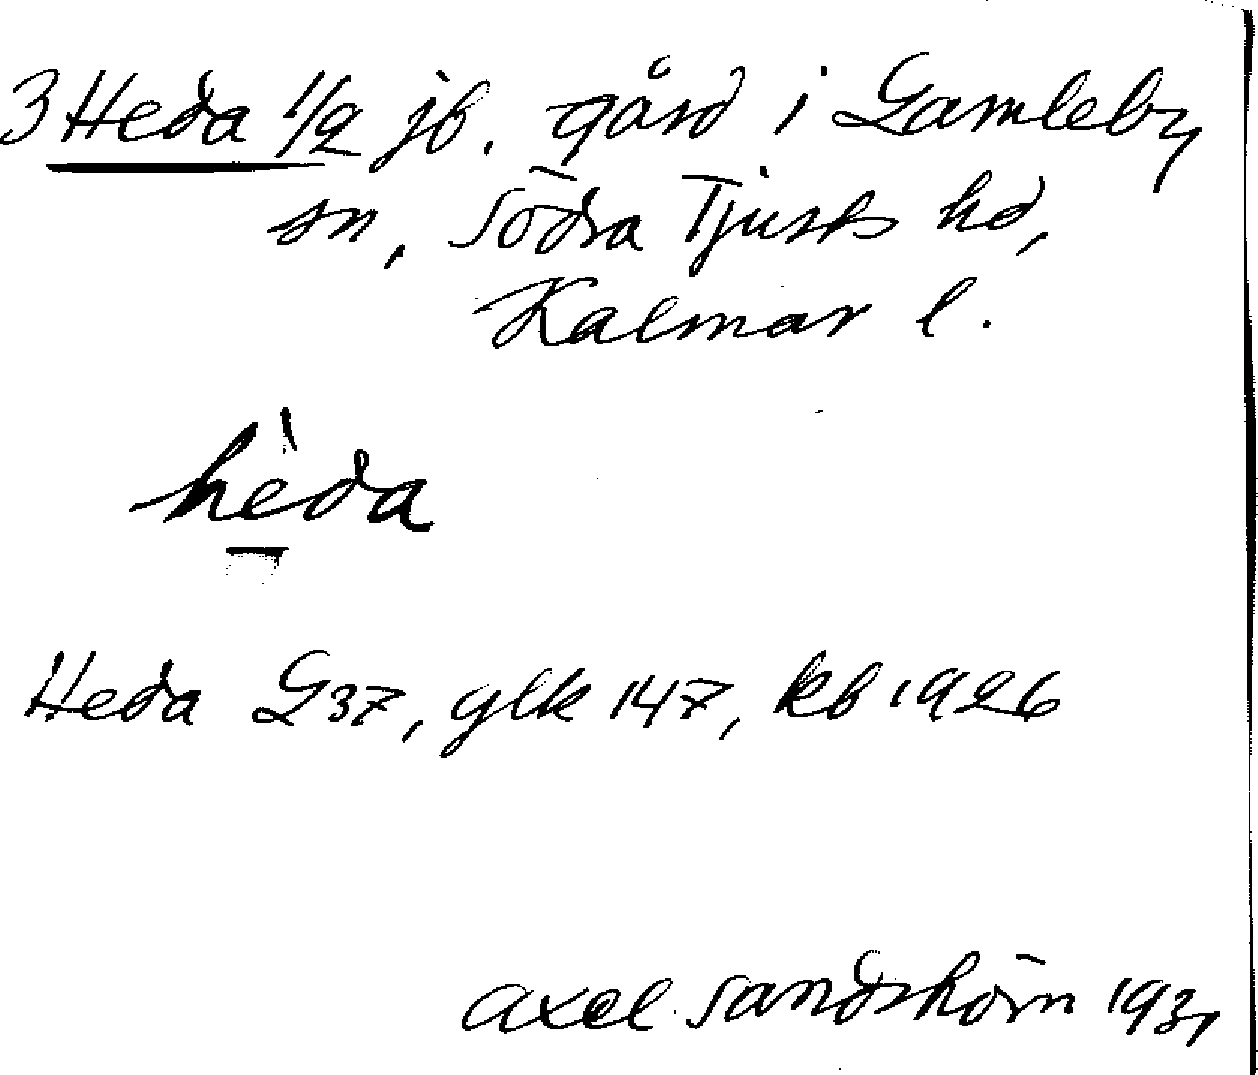 3 Heda 1/2 jb. gård i Gamleby
sn, Södra Tjusts hd,
Kalmar l.
hèda
Heda G37, glk 147, kb 1926
Axel Sandshörn 1931